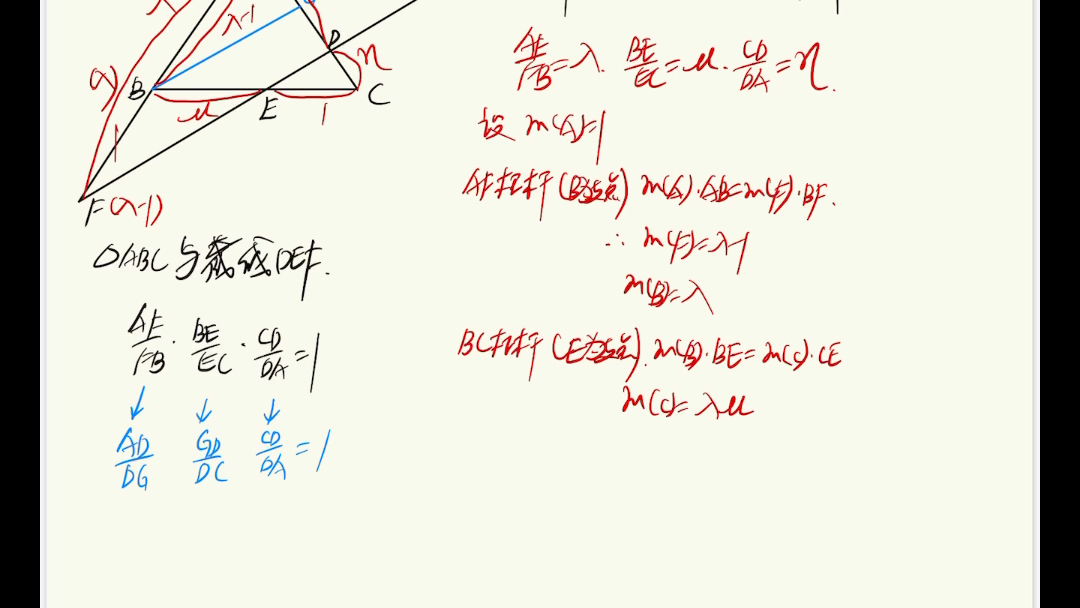 λ-1
B
D
η
μ
E
1
C
1
F(λ-1)
△ABC与截线DEF.
AF/FB · BE/EC · CD/DA = 1
↓ ↓ ↓
AD/DG GD/DC CD/DA = 1
AF/FB = λ. BE/EC = μ. CD/DA = η.
设 m(A)=1
AF杠杆(B为支点) m(A)·AB=m(F)·BF.
∴ m(F)=λ-1
m(B)=λ
BC杠杆(E为支点). m(B)·BE=m(C)·CE
m(C)=λμ